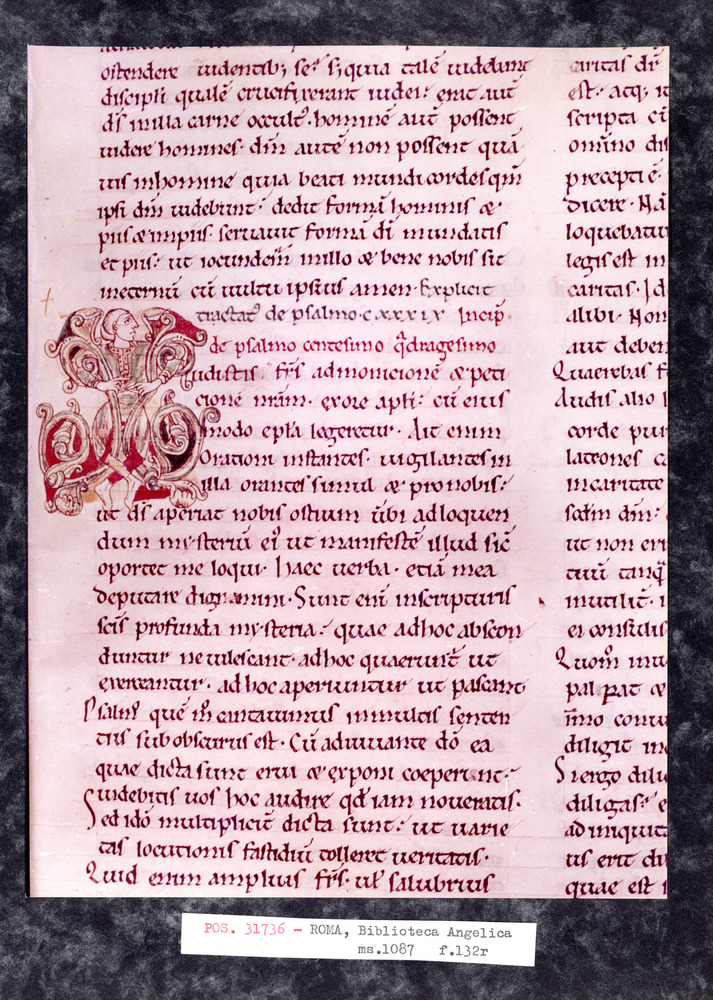 ostendere uidentib; se? s; quia talē uidebant
discipli qualē crucifixerant uideri. erat aut̄
d̄s in illa carne occult̄. hominē aut̄ possent
uidere homines. dm̄ autē non possent quā
uis in homine quia beati mundi cordes qm̄
ipsi dm̄ uidebunt. dedit formā hominis &
piis & impiis. seruauit formā dī mundatis
et piis. ut iocundem̄ in illo & bene nobis sit
in eternū cū uultu ipsius amen. Explicit
tractat̄ de psalmo. cxxxix Incip̄.
de psalmo centesimo q̄dragesimo
udistis fr̄s admonicionē & peti
cionē nr̄am. ex ore apli. cū eius
modo ep̄la legeretur. Ait enim
Orationi instantes. uigilantes in
illa orantes simul & pro nobis.
ut d̄s aperiat nobis ostium ūbi ad loquen
dum mysteriū eī ut manifestē illud sic̄
oportet me loqui. Haec uerba. etiā mea
deputare dignamini. Sunt enī in scripturis
sc̄is profunda mysteria. quae ad hoc abscon
duntur ne uilescant. ad hoc quaerunt̄ ut
exerceantur. ad hoc aperiuntur ut pascant
Psalm̄ quē m̄ cantauimus in multis senten
tiis subobscurus est. Cū adiuuante dō ea
quae dicta sunt erui & exponi coeperint.
Suidebitis uos hoc audire qd̄ iam noueratis.
Sed idō multiplicit̄ dicta sunt. ut uarie
tas locutionis fastidiū tolleret ueritatis.
Quid enim amplius fr̄s. ul̄ salubrius
caritas dī
est. atq;
scripta cū
omīno dis
precepti ē.
dicere. Nā
loquebatu
legis est in
caritas. Id
alibi. Non
aut deben
Quaerebas
Audis alio
corde pur
latrones
in caritate
ut non eri
tuū tanq̄
inutilit̄.
ei consulis
palpat &
diligit
Si ergo dili
diligas?
ad iniquit
us erit
quae est
POS. 31736 - ROMA, Biblioteca Angelica
ms.1087 f.132r